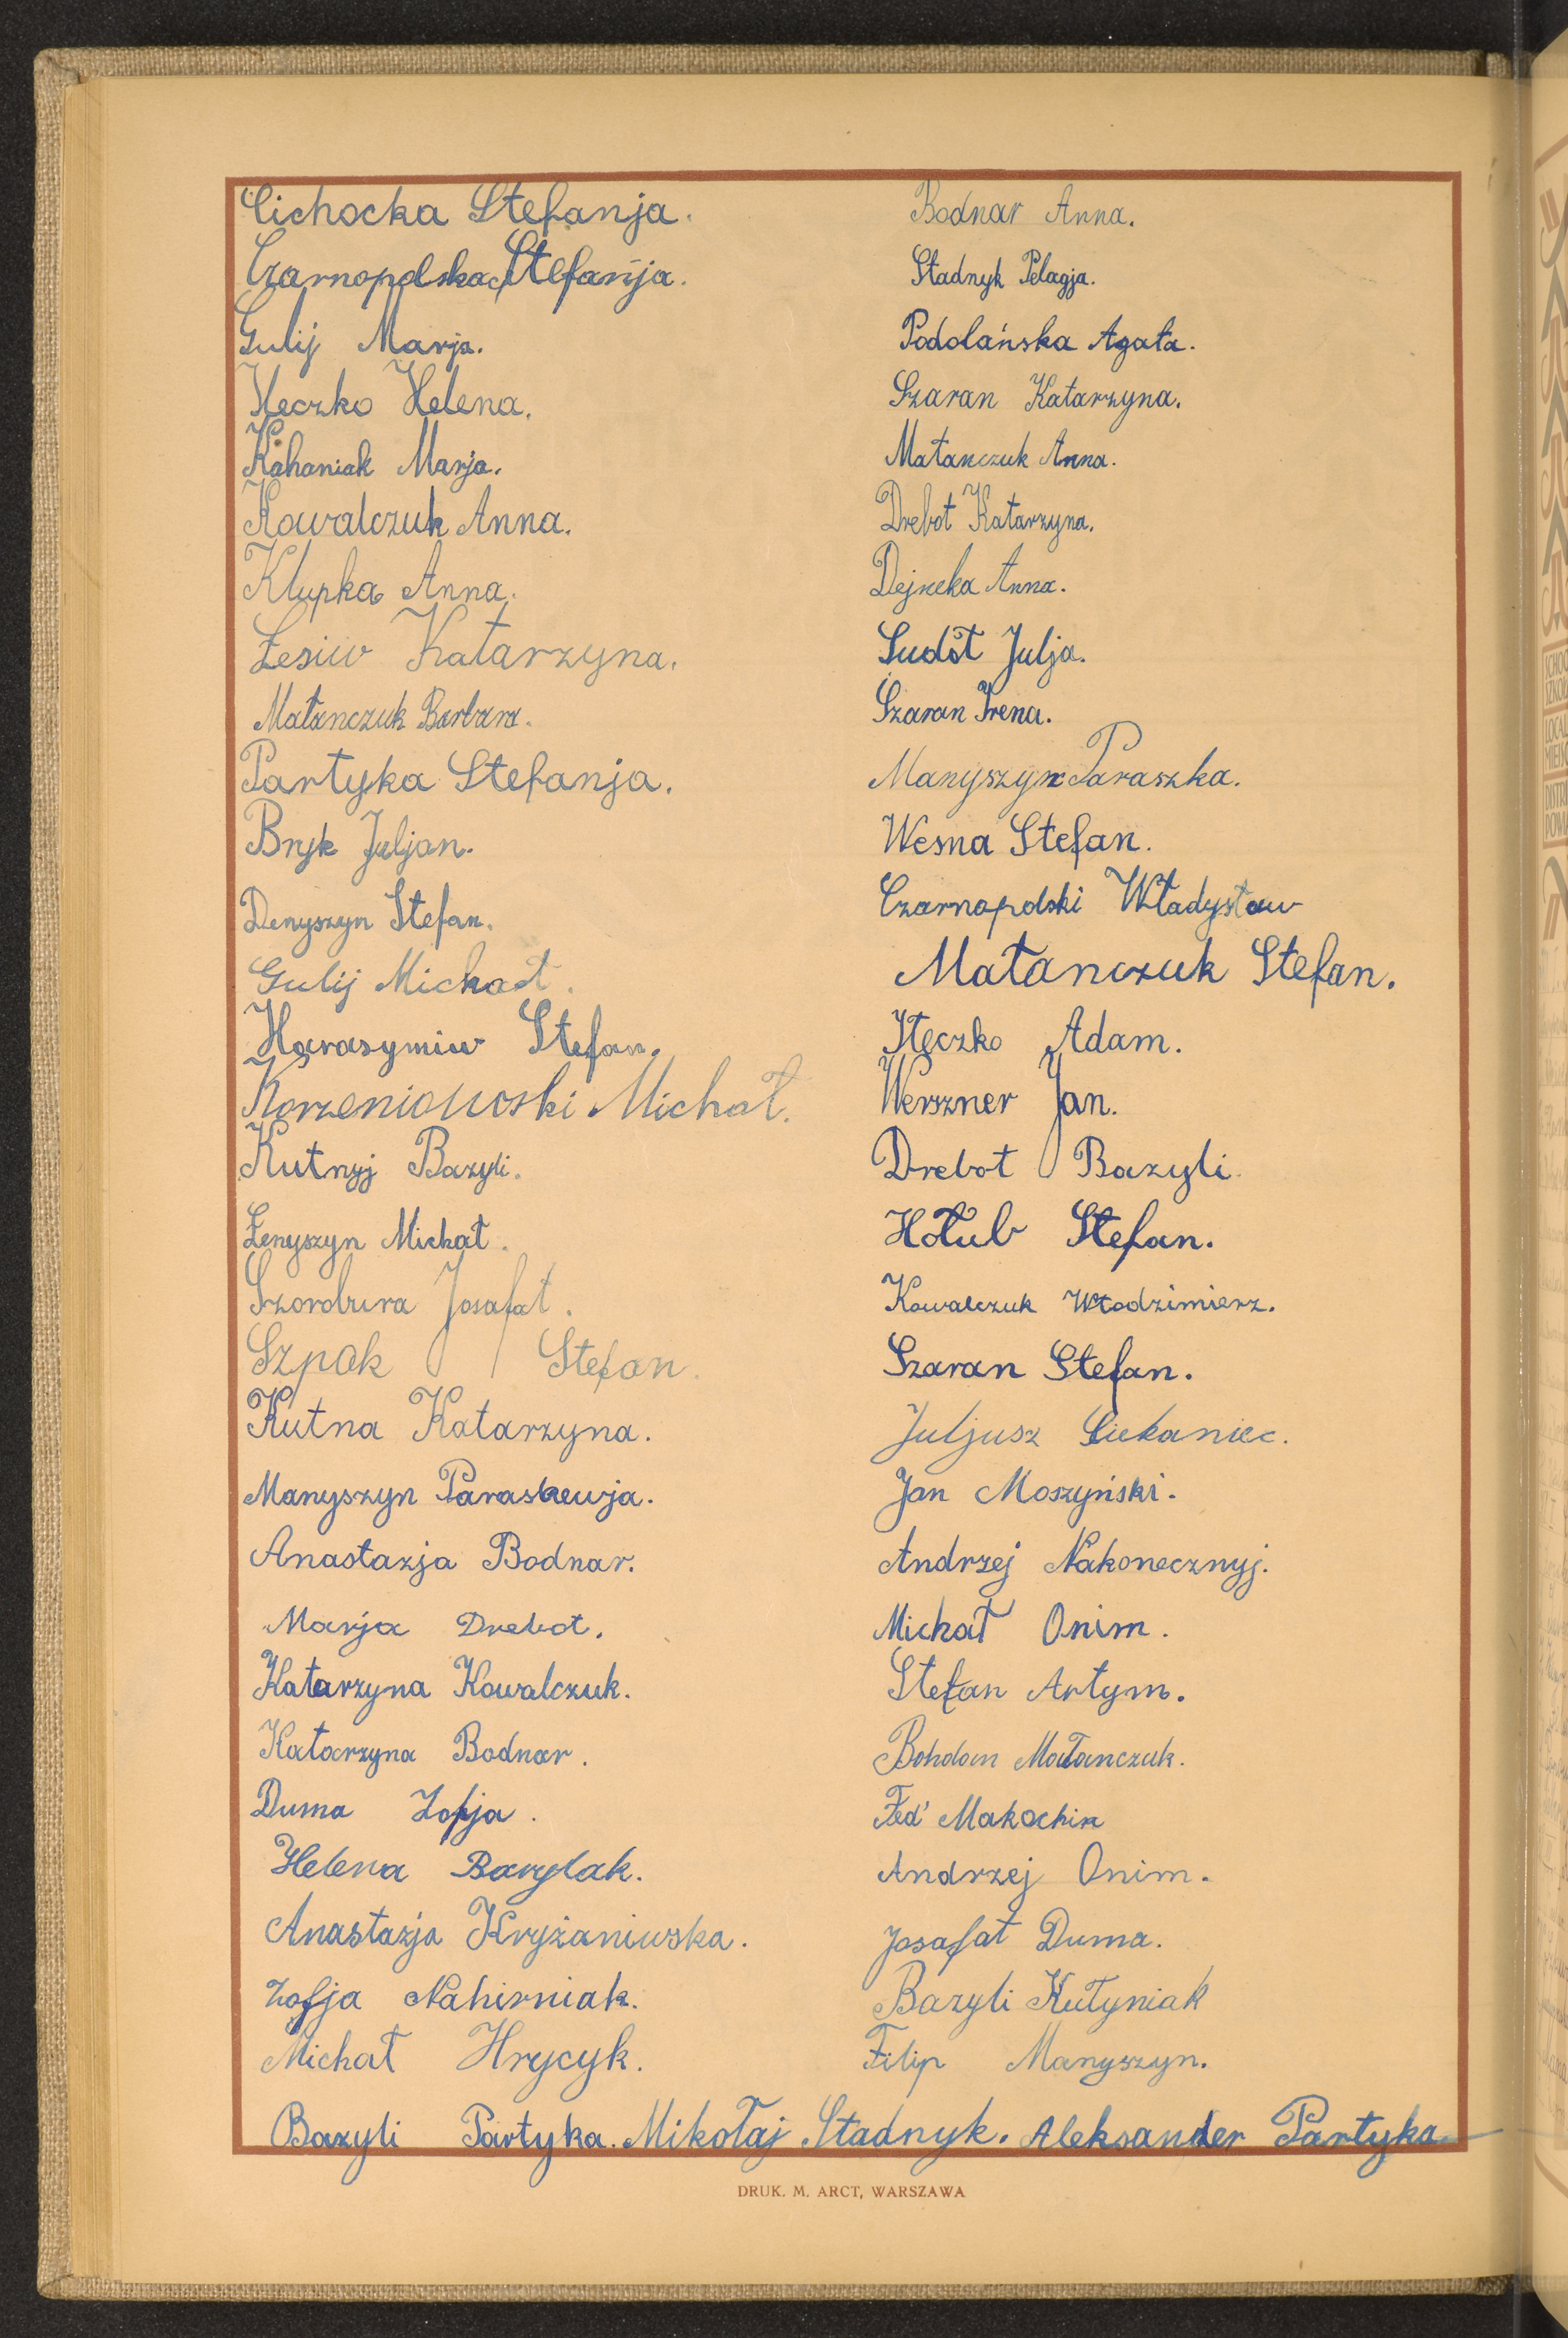 Cichocka Stefanja.
Czarnopolska Stefanja.
Gulij Marja.
Heczko Helena.
Kahaniak Marja.
Kowalczuk Anna.
Klupka Anna.
Łesiw Katarzyna.
Matanczuk Barbara.
Partyka Stefanja.
Bryk Juljan.
Denyszyn Stefan.
Gulij Michał.
Harasymiw Stefan.
Korzeniowski Michał.
Kutnyj Bazyli.
Łenyszyn Michał.
Josafat.
Szpak Stefan.
Kutna Katarzyna.
Manyszyn Paraskewja.
Anastazja Bodnar.
Marja Drebot.
Katarzyna Kowalczuk.
Katarzyna Bodnar.
Duma Zofja.
Helena Barylak.
Anastazja Kryżaniwska.
Zofja Nahirniak.
Michał Hrycyk.
Bodnar Anna.
Stadnyk Pelagja.
Podolańska Agata.
Szaran Katarzyna.
Matanczuk Anna.
Drebot Katarzyna.
Dejneka Anna.
Sudoł Julja.
Szaran Irena.
Manyszyn Paraszka.
Wesna Stefan.
Czarnopolski Władysław
Matanczuk Stefan.
Adam.
Werszner Jan.
Drebot Bazyli.
Hołub Stefan.
Kowalczuk Włodzimierz.
Szaran Stefan.
Juljusz Ciekaniec.
Jan Moszyński.
Andrzej Nakonecznyj.
Michał Onim.
Stefan Artym.
Bohdan Matanczuk.
Fed' Makochin
Andrzej Onim.
Josafat Duma.
Bazyli Kutyniak
Filip Manyszyn.
Bazyli Partyka. Mikołaj Stadnyk. Aleksander Partyka
DRUK. M. ARCT, WARSZAWA